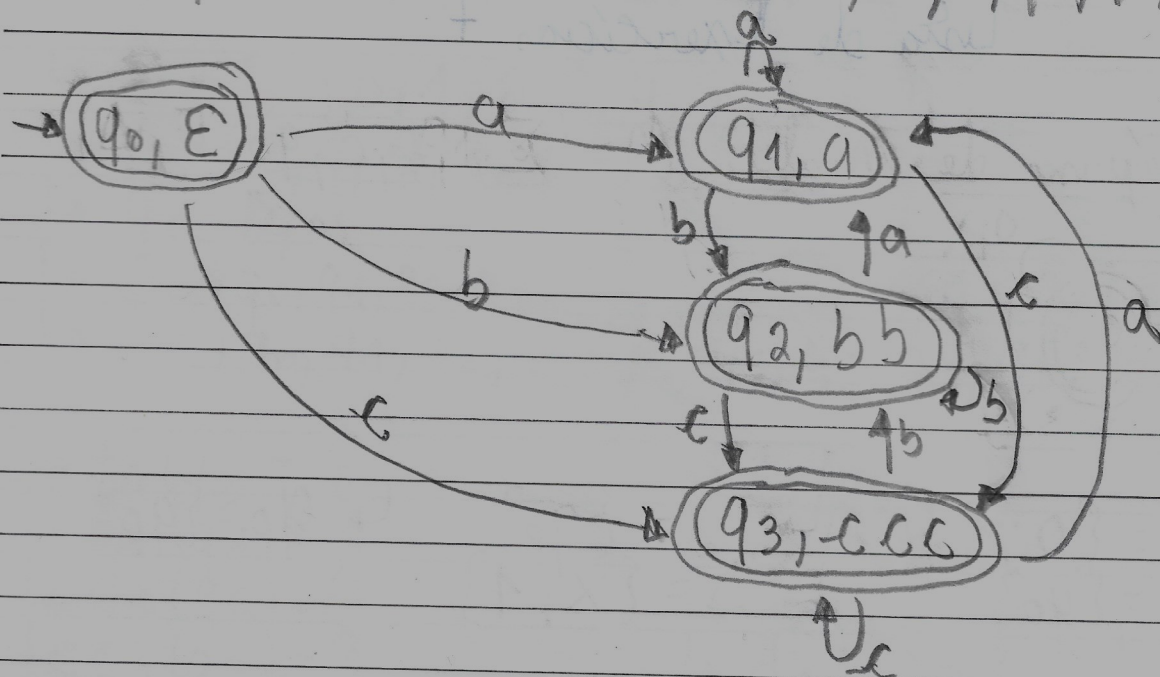 a
q0, ε
a
q1, a
b
a
c
a
b
q2, bb
b
c
b
c
q3, ccc
c